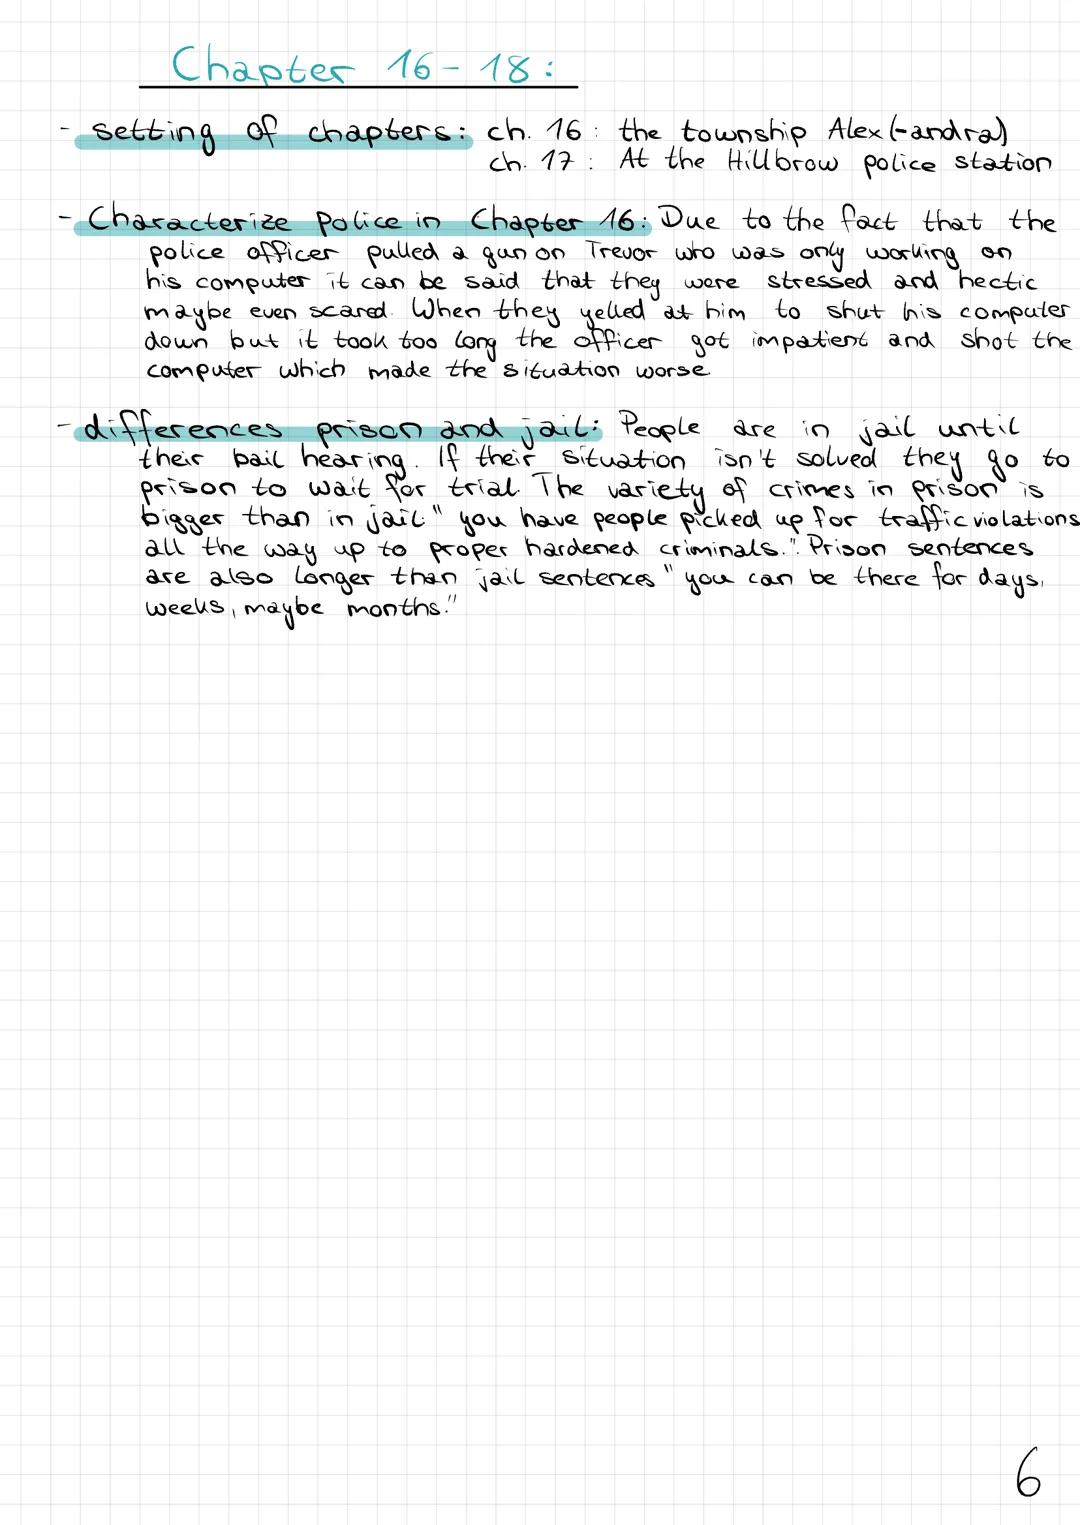 Chapter 16-18:
- setting of chapters: ch. 16: the township Alex(-andra)
ch. 17: At the Hillbrow police station
- Characterize Police in Chapter 16: Due to the fact that the
police officer pulled a gun on Trevor who was only working on
his computer it can be said that they were stressed and hectic
maybe even scared. When they yelled at him to shut his computer
down but it took too long the officer got impatient and shot the
computer which made the situation worse
- differences prison and jail: People are in jail until
their bail hearing. If their situation isn't solved they go to
prison to wait for trial. The variety of crimes in prison is
bigger than in jail "you have people picked up for traffic violations
all the way up to proper hardened criminals.". Prison sentences
are also longer than jail sentences "you can be there for days,
weeks, maybe months."
6